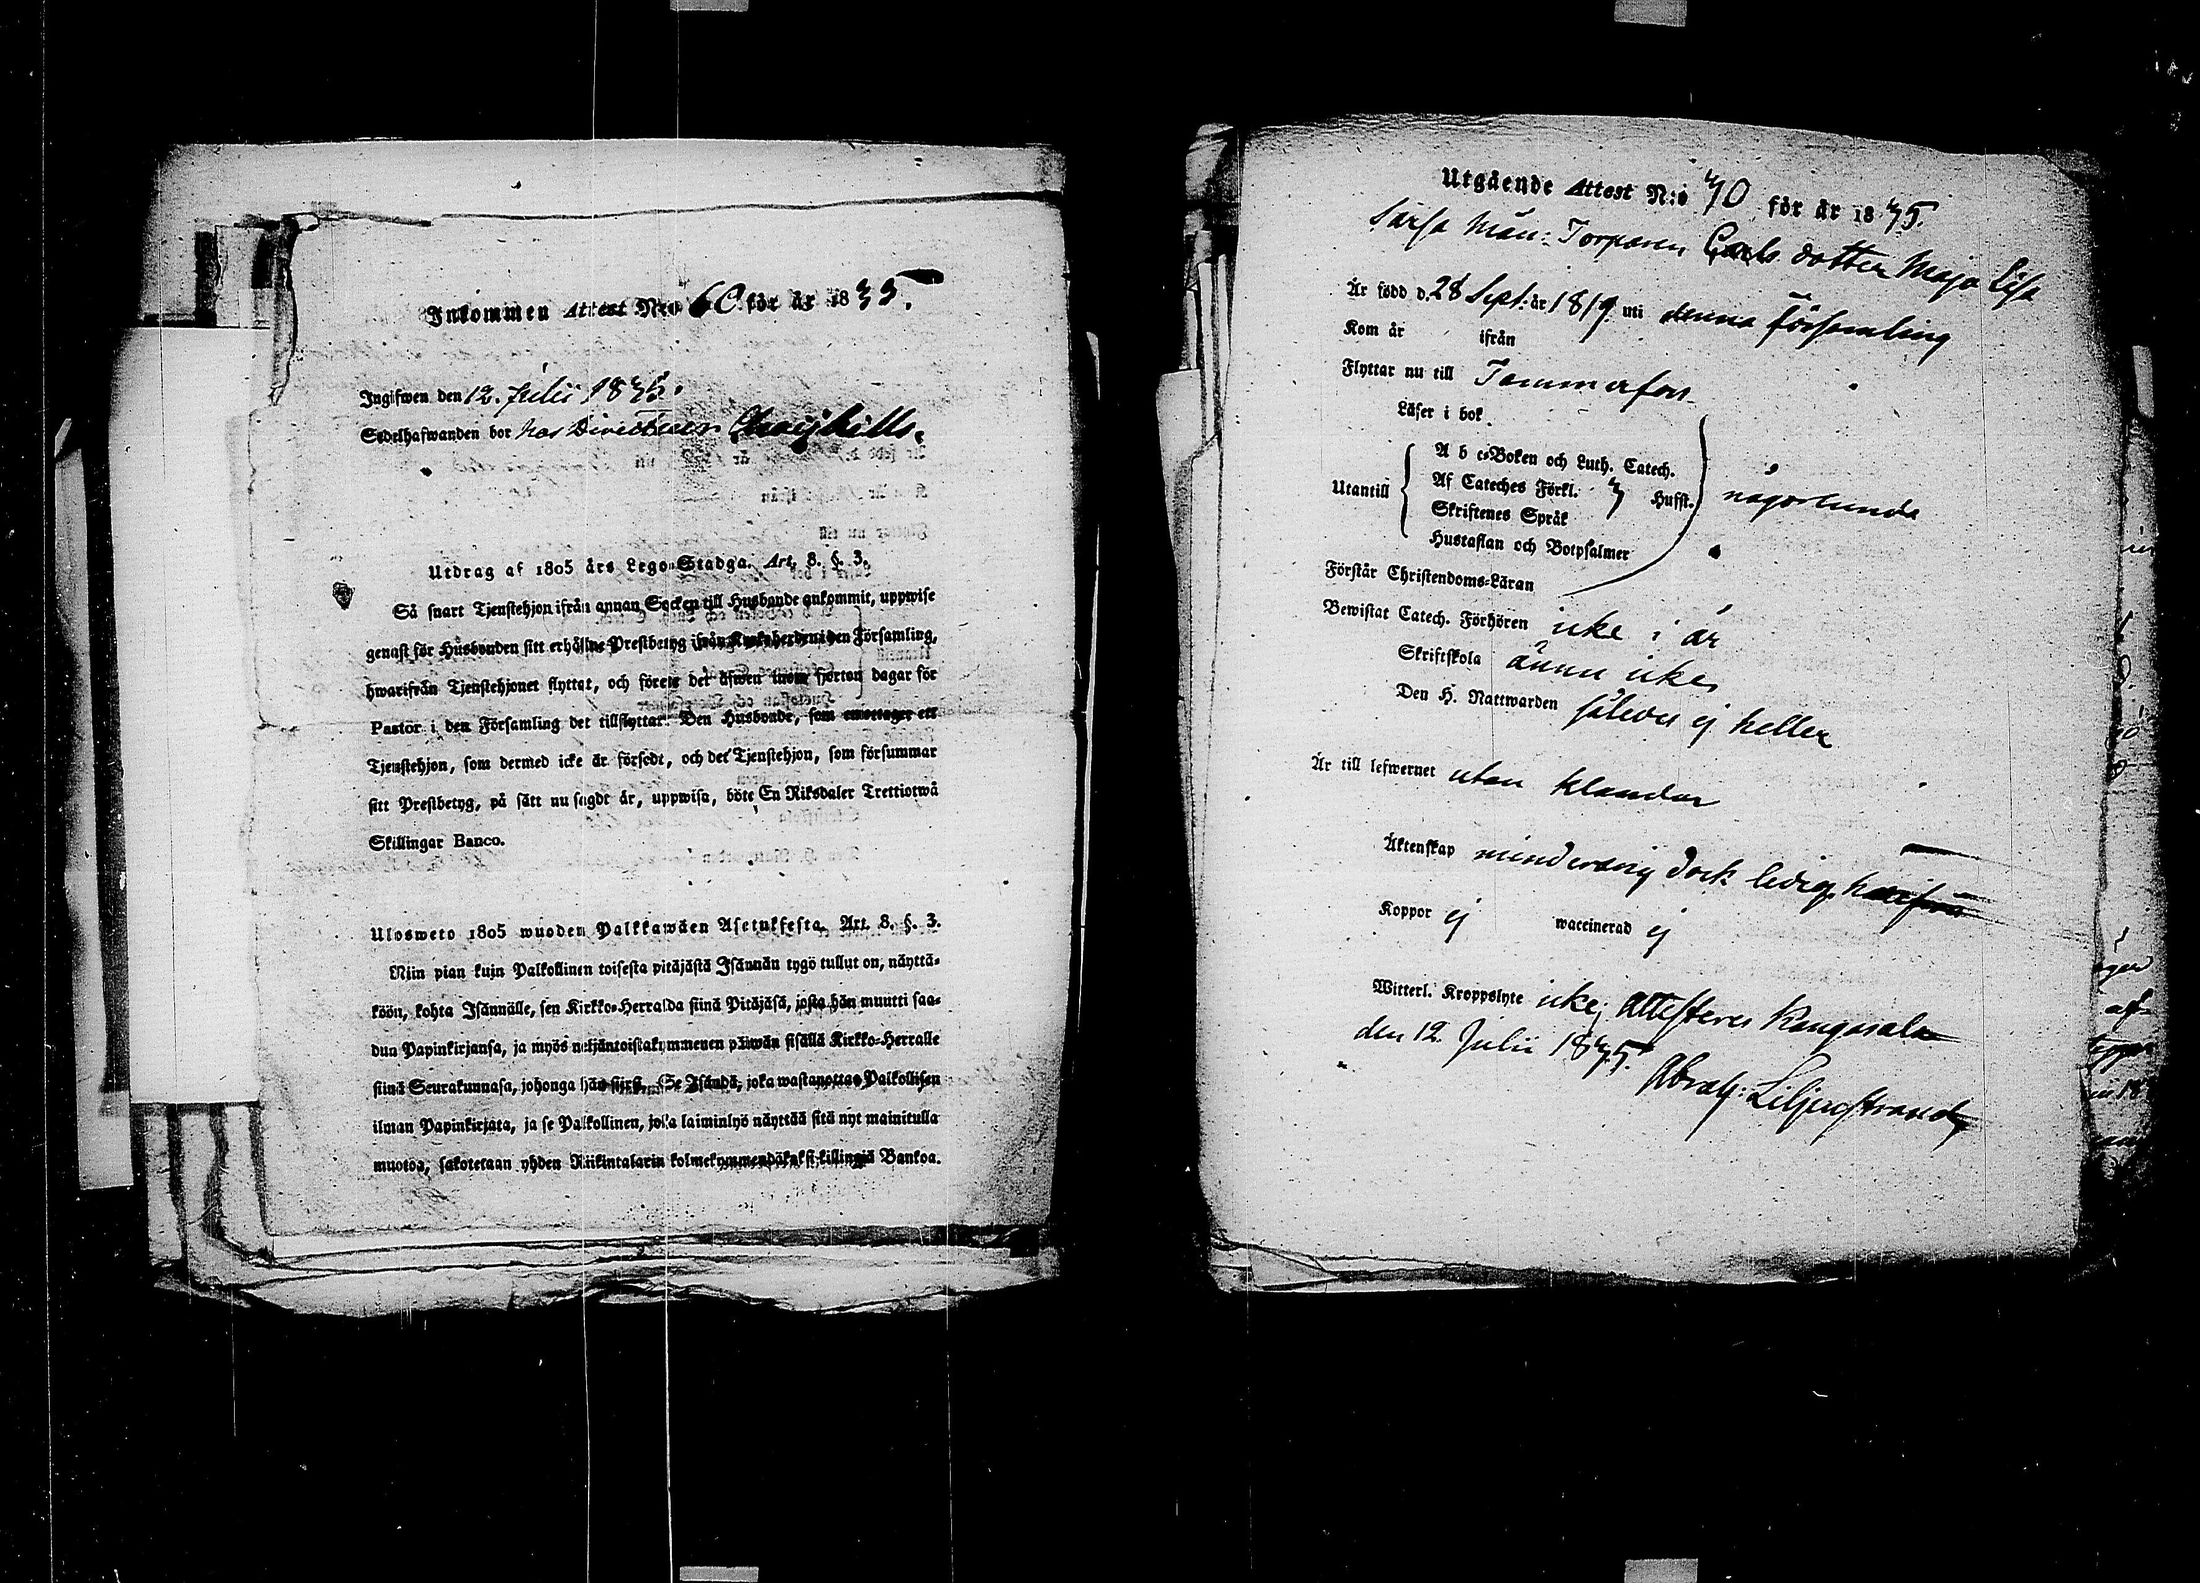 Inkommen Attest N:o 60 för år 1835.
Ingifwen den 12. Julii 1835.
Sedelhafwanden bor hos Directeur
Utdrag af 1805 års Lego-Stadga. Art. 8. §. 3.
Så snart Tjenstehjon ifrån annan Socken till Husbonde ankommit, uppwise
genast för Husbonden sitt erhållne Prestbetyg ifrån Kyrkoherden i den Församling,
hwarifrån Tjenstehjonet flyttat, och förete det äfwen inom fjorton dagar för
Pastor i den Församling det tillflyttar. Den Husbonde, som emottager ett
Tjenstehjon, som dermed icke är försedt, och det Tjenstehjon, som försummar
sitt Prestbetyg, på sätt nu sagdt är, uppwisa, böte En Riksdaler Trettiotwå
Skillingar Banco.
Ulosweto 1805 wuoden Palkkawäen Asetuksesta. Art. 8. §. 3.
Niin pian kuin Palkollinen toisesta pitäjästä Isännän tygö tullut on, näyttä-
köön, kohta Isännälle, sen Kirkko-Herralda siinä Pitäjäsä, josta hän muutti saa-
dun Papinkirjansa, ja myös neljäntoistakymmenen päiwän sisällä Kirkko-Herralle
siinä Seurakunnasa, johonga hän siirsi. Se Isändä, joka wastanottaa Palkollisen
ilman Papinkirjata, ja se Palkollinen, joka laiminlyö näyttää sitä nyt mainitulla
muotoa, sakotetaan yhden Riikintalarin kolmekymmendäkaksi killingiä Bankoa.
Utgående Attest N:o 70 för år 1835.
Särsa Mäu: Torparen Carls dotter Maja Lisa
Är född d. 28 Sept. år 1819 uti denna Församling
Kom år ifrån
Flyttar nu till Tammerfors
Läser i bok
A b c-Boken och Luth. Catech.
Utantill Af Cateches Förkl. Hufst. någorlunda
Skriftenes Språk
Hustaflan och Botpsalmer
Förstår Christendoms-Läran
Bewistat Catech. Förhören icke i år
Skriftskola ännu icke,
Den H. Nattwarden således ej heller
Är till lefwernet utan klander
Äktenskap minderårig dock ledig härifrån
Koppor ej waccinerad ej
Witterl. Kroppslyte icke; Attesteras Kangasala
den 12. Julii 1835.
Abrah: Liljestrand